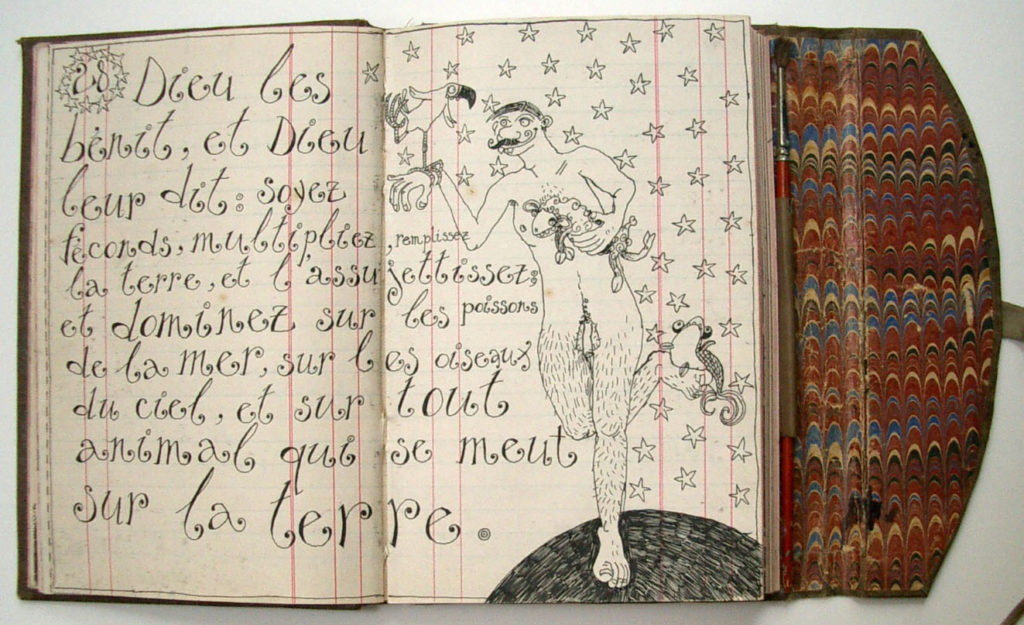 28 Dieu les
bénit, et Dieu
leur dit: soyez
féconds, multipliez, remplissez
la terre, et l'assujettissez;
et dominez sur les poissons
de la mer, sur les oiseaux
du ciel, et sur tout
animal qui se meut
sur la terre.